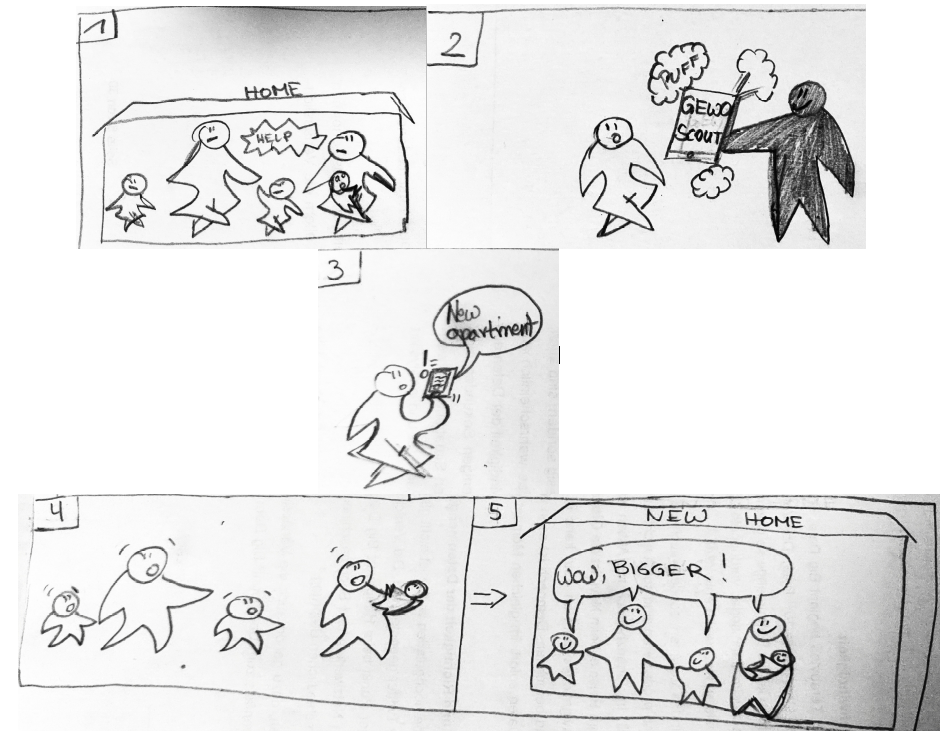 1
HOME
HELP
2
PUFF
GEWO
SCOUT
3
New
apartment
!
4
5
NEW HOME
WOW, BIGGER!